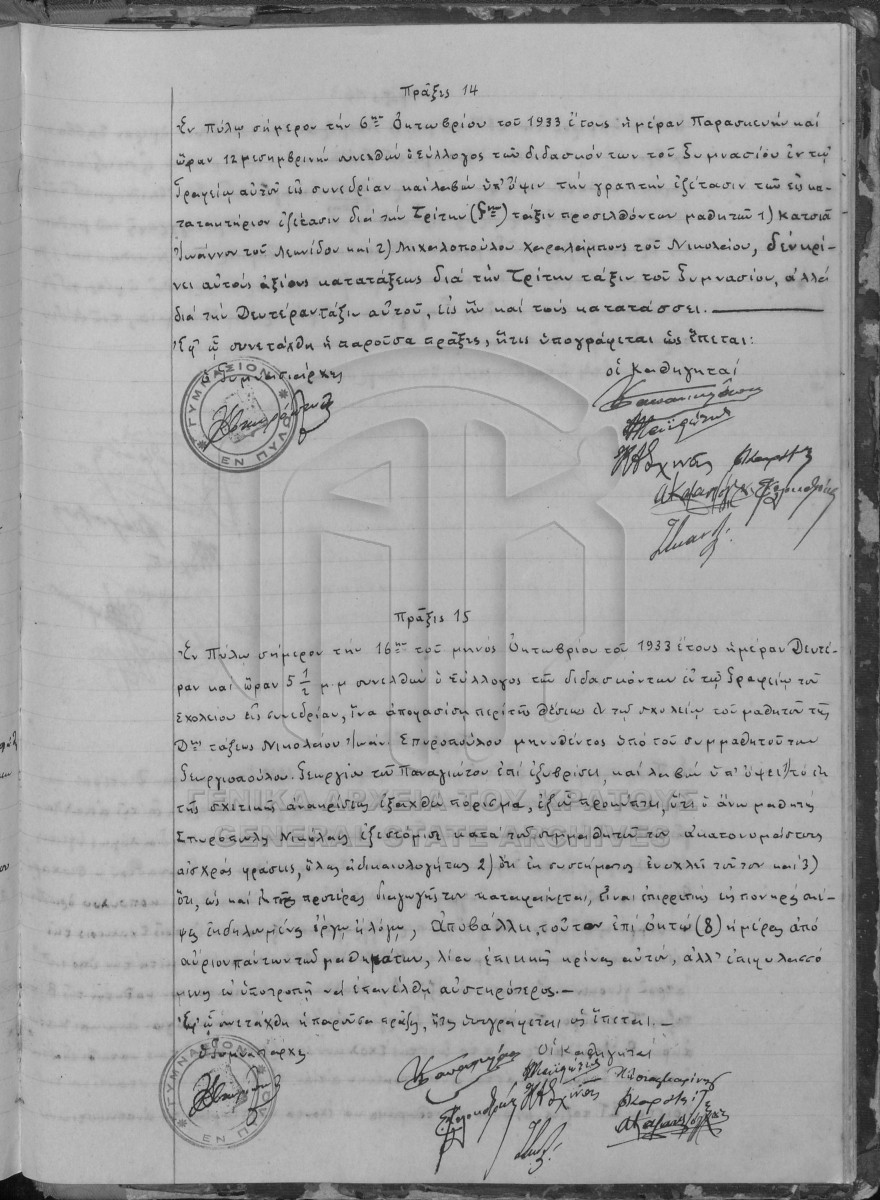 Πρᾶξις 14
Ἐν Πύλῳ σήμερον τήν 6ην Ὀκτωβρίου τοῦ 1933 ἔτους ἡμέραν Παρασκευήν καί
ὥραν 12 μεσημβρινήν συνελθών ὁ Σύλλογος τῶν διδασκόντων τοῦ Γυμνασίου ἐν τῷ
Γραφείῳ αὐτοῦ εἰς συνεδρίαν καί λαβών ὑπ' ὄψιν τήν γραπτήν ἐξέτασιν τῶν εἰς κα-
τατακτήριον ἐξέτασιν διά τήν Τρίτην (Γην) τάξιν προσελθόντων μαθητῶν 1) Κατσιᾶ
Ἰωάννου τοῦ Λεωνίδου καί 2) Μιχαλοπούλου Χαραλάμπους τοῦ Νικολάου, δέν κρί-
νει αὐτούς ἀξίους κατατάξεως διά τήν Τρίτην τάξιν τοῦ Γυμνασίου, ἀλλά
διά τήν Δευτέραν τάξιν αὐτοῦ, εἰς ἥν καί τούς κατατάσσει.
Ἐφ' ᾧ συνετάχθη ἡ παροῦσα πρᾶξις, ἥτις ὑπογράφεται ὡς ἕπεται:
ὁ Γυμνασιάρχης
οἱ καθηγηταί
ΓΥΜΝΑΣΙΟΝ ΕΝ ΠΥΛΩ
Πρᾶξις 15
Ἐν Πύλῳ σήμερον τήν 16ην τοῦ μηνός Ὀκτωβρίου τοῦ 1933 ἔτους ἡμέραν Δευτέ-
ραν καί ὥραν 5 1/2 μ.μ συνελθών ὁ Σύλλογος τῶν διδασκόντων ἐν τῷ Γραφείῳ τοῦ
Σχολείου εἰς συνεδρίαν, ἵνα ἀποφασίσῃ περί τῆς θέσεως ἐν τῷ σχολείῳ τοῦ μαθητοῦ τῆς
Δης τάξεως Νικολάου Ἰωάν. Σπυροπούλου μηνυθέντος ὑπό τοῦ συμμαθητοῦ του
Γεωργιοπούλου Γεωργίου τοῦ Παναγιώτου ἐπί ἐξυβρίσει, καί λαβών ὑπ' ὄψει 1) τό ἐκ
τῆς σχετικῆς ἀνακρίσεως ἐξαχθέν πόρισμα, ἐξ οὗ προκύπτει, ὅτι ὁ ἄνω μαθητής
Σπυρόπουλος Νικόλαος ἐξεστόμισε κατά τοῦ συμμαθητοῦ του ἀκατονομάστους
αἰσχράς φράσεις, ὅλως ἀδικαιολογήτως 2) ὅτι ἐκ συστήματος ἐνοχλεῖ τοῦτον καί 3)
ὅτι, ὡς καί ἐκ τῆς προτέρας διαγωγῆς του καταφαίνεται, εἶναι ἐπιρρεπής εἰς πονηράς σκέ-
ψεις ἐκδηλουμένας ἔργῳ ἢ λόγῳ, ἀποβάλλει τοῦτον ἐπί ὀκτώ (8) ἡμέρας ἀπό
αὔριον πάντων τῶν μαθημάτων, λίαν ἐπιεικῶς κρίνας αὐτόν, ἀλλ' ἐπιφυλασσό
μενος ἐν ὑποτροπῇ νά ἐπανέλθῃ αὐστηρότερος.—
Ἐφ' ᾧ συνετάχθη ἡ παροῦσα πρᾶξις, ἥτις ὑπογράφεται ὡς ἕπεται.—
ὁ Γυμνασιάρχης
Οἱ καθηγηταί
ΓΥΜΝΑΣΙΟΝ ΕΝ ΠΥΛΩ
ΓΕΝΙΚΑ ΑΡΧΕΙΑ ΤΟΥ ΚΡΑΤΟΥΣ
GENERAL STATE ARCHIVES